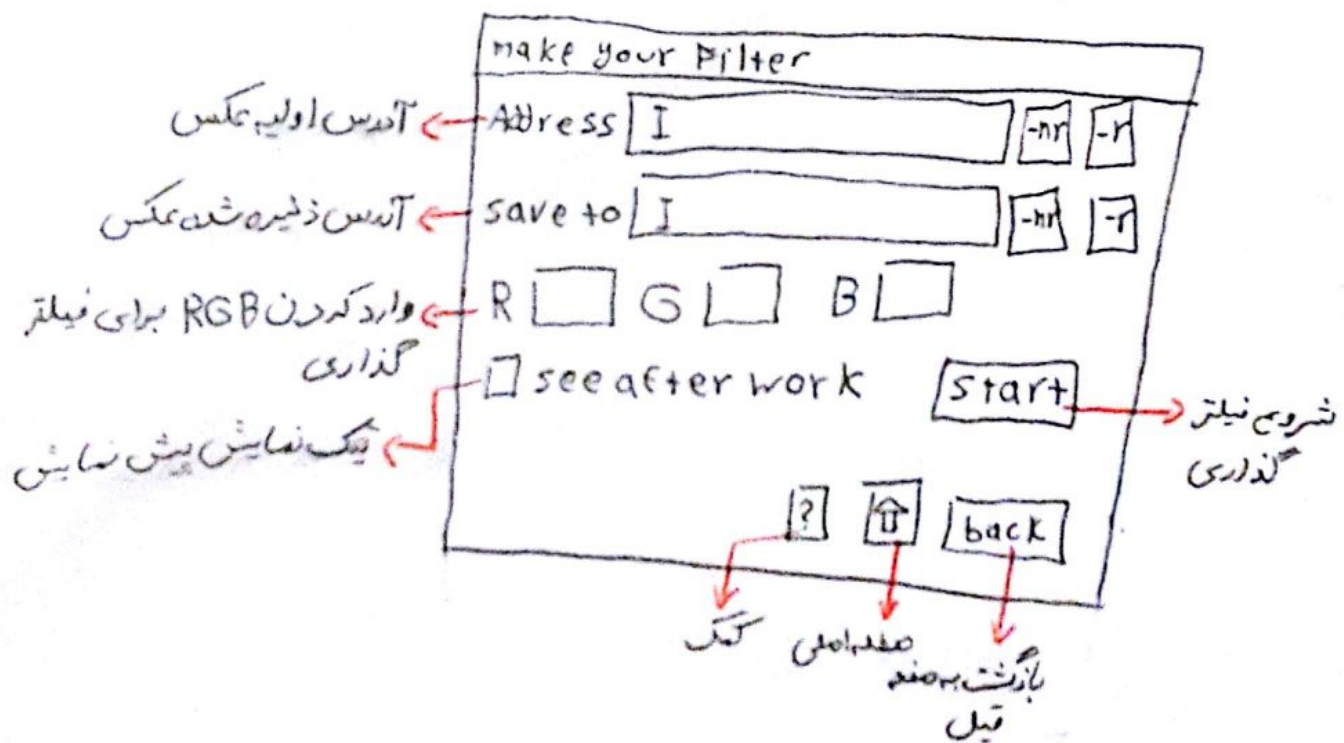 make your Filter
آدرس اولیه عکس
Address I -nr -r
آدرس ذخیره شدن عکس
save to I -nr -r
وارد کردن RGB برای فیلتر
گذاری
R G B
see after work
start
یک نمایش پیش نمایش
شروع فیلتر
گذاری
? back
کمک
صفحه اصلی
بازگشت به صفحه
قبل